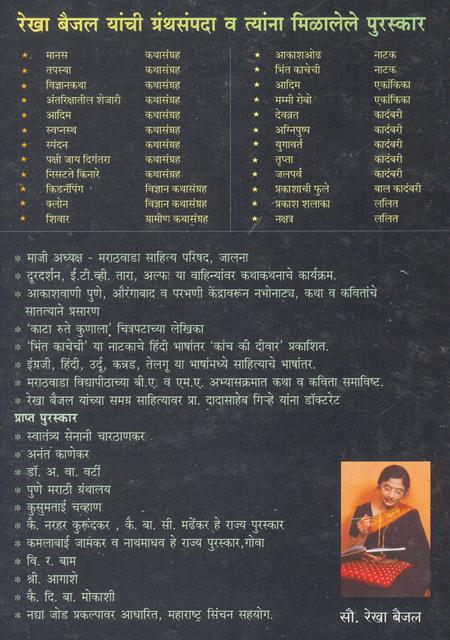 रेखा बैजल यांची ग्रंथसंपदा व त्यांना मिळालेले पुरस्कार
मानस कथासंग्रह
तपस्या कथासंग्रह
विज्ञानकथा कथासंग्रह
अंतरिक्षातील शेजारी कथासंग्रह
आदिम कथासंग्रह
स्वप्नस्थ कथासंग्रह
स्पंदन कथासंग्रह
पक्षी जाय दिगंतरा कथासंग्रह
निसटते किनारे कथासंग्रह
किडनॅपिंग विज्ञान कथासंग्रह
क्लोन विज्ञान कथासंग्रह
शिवार ग्रामीण कथासंग्रह
आकाशओढ नाटक
भिंत काचेची नाटक
आदिम एकांकिका
मम्मी रोबो एकांकिका
देवव्रत कादंबरी
अग्निपुष्प कादंबरी
युगावर्त कादंबरी
तृप्ता कादंबरी
जलपर्व कादंबरी
प्रकाशाची फुले बाल कादंबरी
प्रकाश शलाका ललित
नक्षत्र ललित
* माजी अध्यक्ष - मराठवाडा साहित्य परिषद, जालना
* दूरदर्शन, ई.टी.व्ही. तारा, अल्फा या वाहिन्यांवर कथाकथनाचे कार्यक्रम.
* आकाशवाणी पुणे, औरंगाबाद व परभणी केंद्रावरून नभोनाट्य, कथा व कवितांचे
सातत्याने प्रसारण
* 'काटा रुते कुणाला' चित्रपटाच्या लेखिका
* 'भिंत काचेची' या नाटकाचे हिंदी भाषांतर 'कांच की दीवार' प्रकाशित.
* इंग्रजी, हिंदी, उर्दू, कन्नड, तेलगू या भाषांमध्ये साहित्याचे भाषांतर.
* मराठवाडा विद्यापीठाच्या बी.ए. व एम.ए. अभ्यासक्रमात कथा व कविता समाविष्ट.
* रेखा बैजल यांच्या समग्र साहित्यावर प्रा. दादासाहेब गिऱ्हे यांना डॉक्टरेट
प्राप्त पुरस्कार
* स्वातंत्र्य सेनानी चारठाणकर
* अनंत काणेकर
* डॉ. अ. वा. वर्टी
* पुणे मराठी ग्रंथालय
* कुसुमताई चव्हाण
* कै. नरहर कुरूंदकर , कै. बा. सी. मर्ढेकर हे राज्य पुरस्कार
* कमलाबाई जामकर व नाथमाधव हे राज्य पुरस्कार,गोवा
* वि. र. बाम
* श्री. आगाशे
* कै. दि. बा. मोकाशी
* नद्या जोड प्रकल्पावर आधारित, महाराष्ट्र सिंचन सहयोग.
सौ. रेखा बैजल